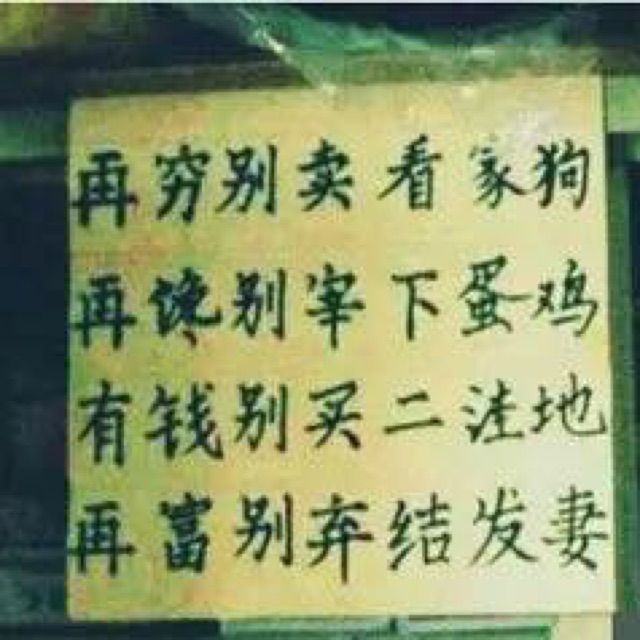 再穷别卖看家狗
再馋别宰下蛋鸡
有钱别买二洼地
再富别弃结发妻